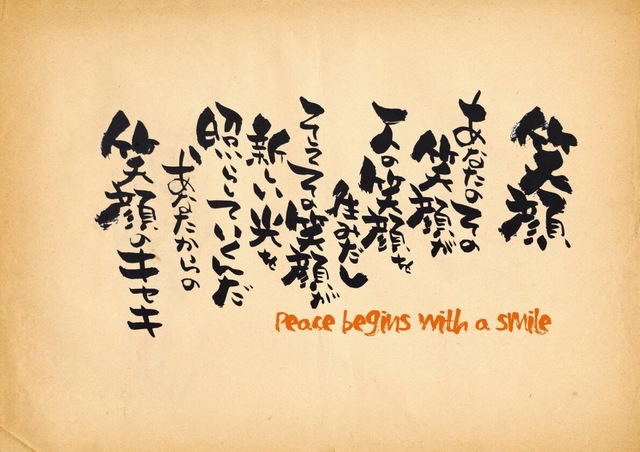 笑顔
あなたのその
笑顔が
人の笑顔を
生みだし
そしてその笑顔が
新しい光を
照らしていくんだ
あなたからの
笑顔のキセキ
Peace begins with a smile